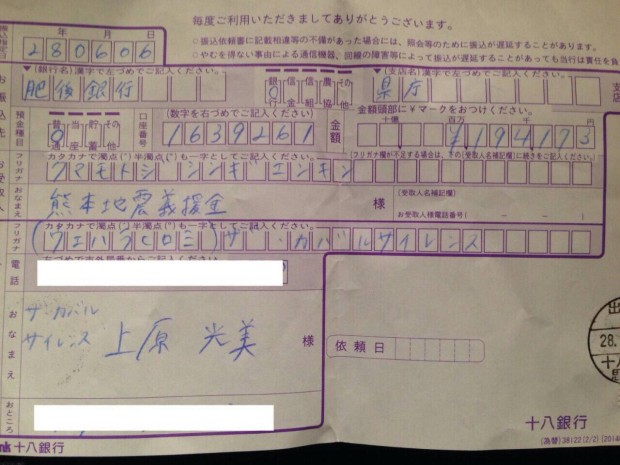 毎度ご利用いただきましてありがとうございます。
○振込依頼書に記載相違等の不備があった場合には、照会等のために振込が遅延することがあります。
○やむを得ない事由による通信機器、回線の障害等によって振込が遅延することがあっても当行は責任を負
年 月 日
280606
お振込先
(銀行名)漢字で左づめでご記入ください。
(支店名)漢字で左づめでご記入ください。
肥後銀行
銀行 信金 信組 農協 その他
県庁
支店
預金種目
普通 当座 貯蓄 その他
口座番号
(数字を右づめでご記入ください。)
1639261
金額
金額頭部に¥マークをおつけください。
十億 百万 千 円
¥194173
お受取人
フリガナ
カタカナで濁点(゛)半濁点(゜)も一字としてご記入ください。
(フリガナ欄が不足する場合は、
クマモトジシンギエンキン
おなまえ
熊本地震義援金
様
(受取人名補記欄)
お受取人様電話番号
フリガナ
カタカナで濁点(゛)半濁点(゜)も一字としてご記入ください。
(ウエハラヒロミ)ザ・カバルサイレンス
電話
おなまえ
ザ・カバル
サイレンス
上原 光美
様
依頼日
おところ
出
28.
十八
十八銀行
nk 十八銀行
(為替)38122(2/2)(2014